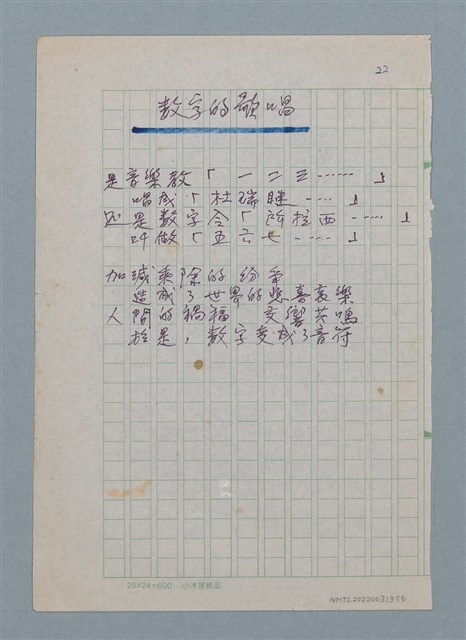 22
数字的歌唱
是音樂教「一二三……」
唱成「杜瑞瞇……」
还是数字令「所拉西……」
叫做「五六七……」
加減乘除的纷争
造成了世界的悲喜哀樂
人間的禍福 交響共鳴
於是，数字变成了音符
25×24=600 小木屋紙品
NMTL20220031356